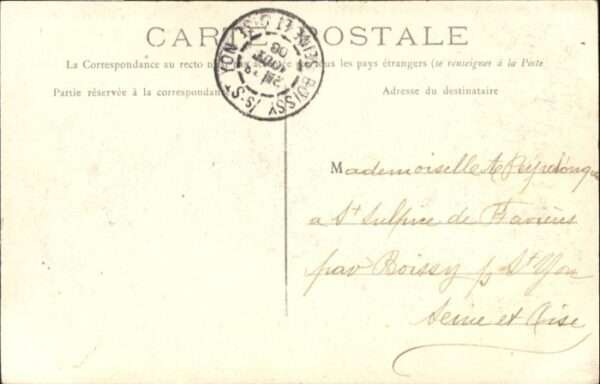 CARTE POSTALE
La Correspondance au recto n'est pas acceptée par tous les pays étrangers (se renseigner à la Poste
Partie réservée à la correspondance
Adresse du destinataire
BOISSY-/S-ST YON SEINE ET OISE
Mademoiselle
a St Sulpice de Favières
par Boissy s St Yon
Seine et Oise